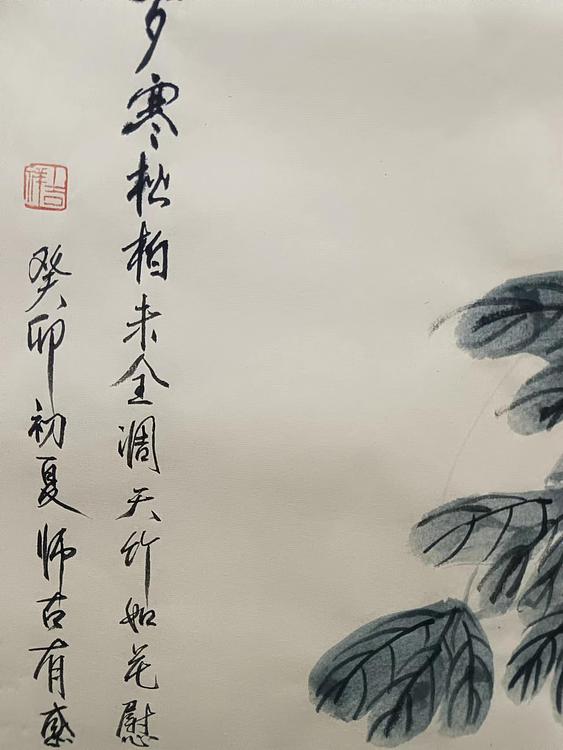 岁寒松柏未全凋天竹如花慰
吉祥
癸卯初夏师古有感